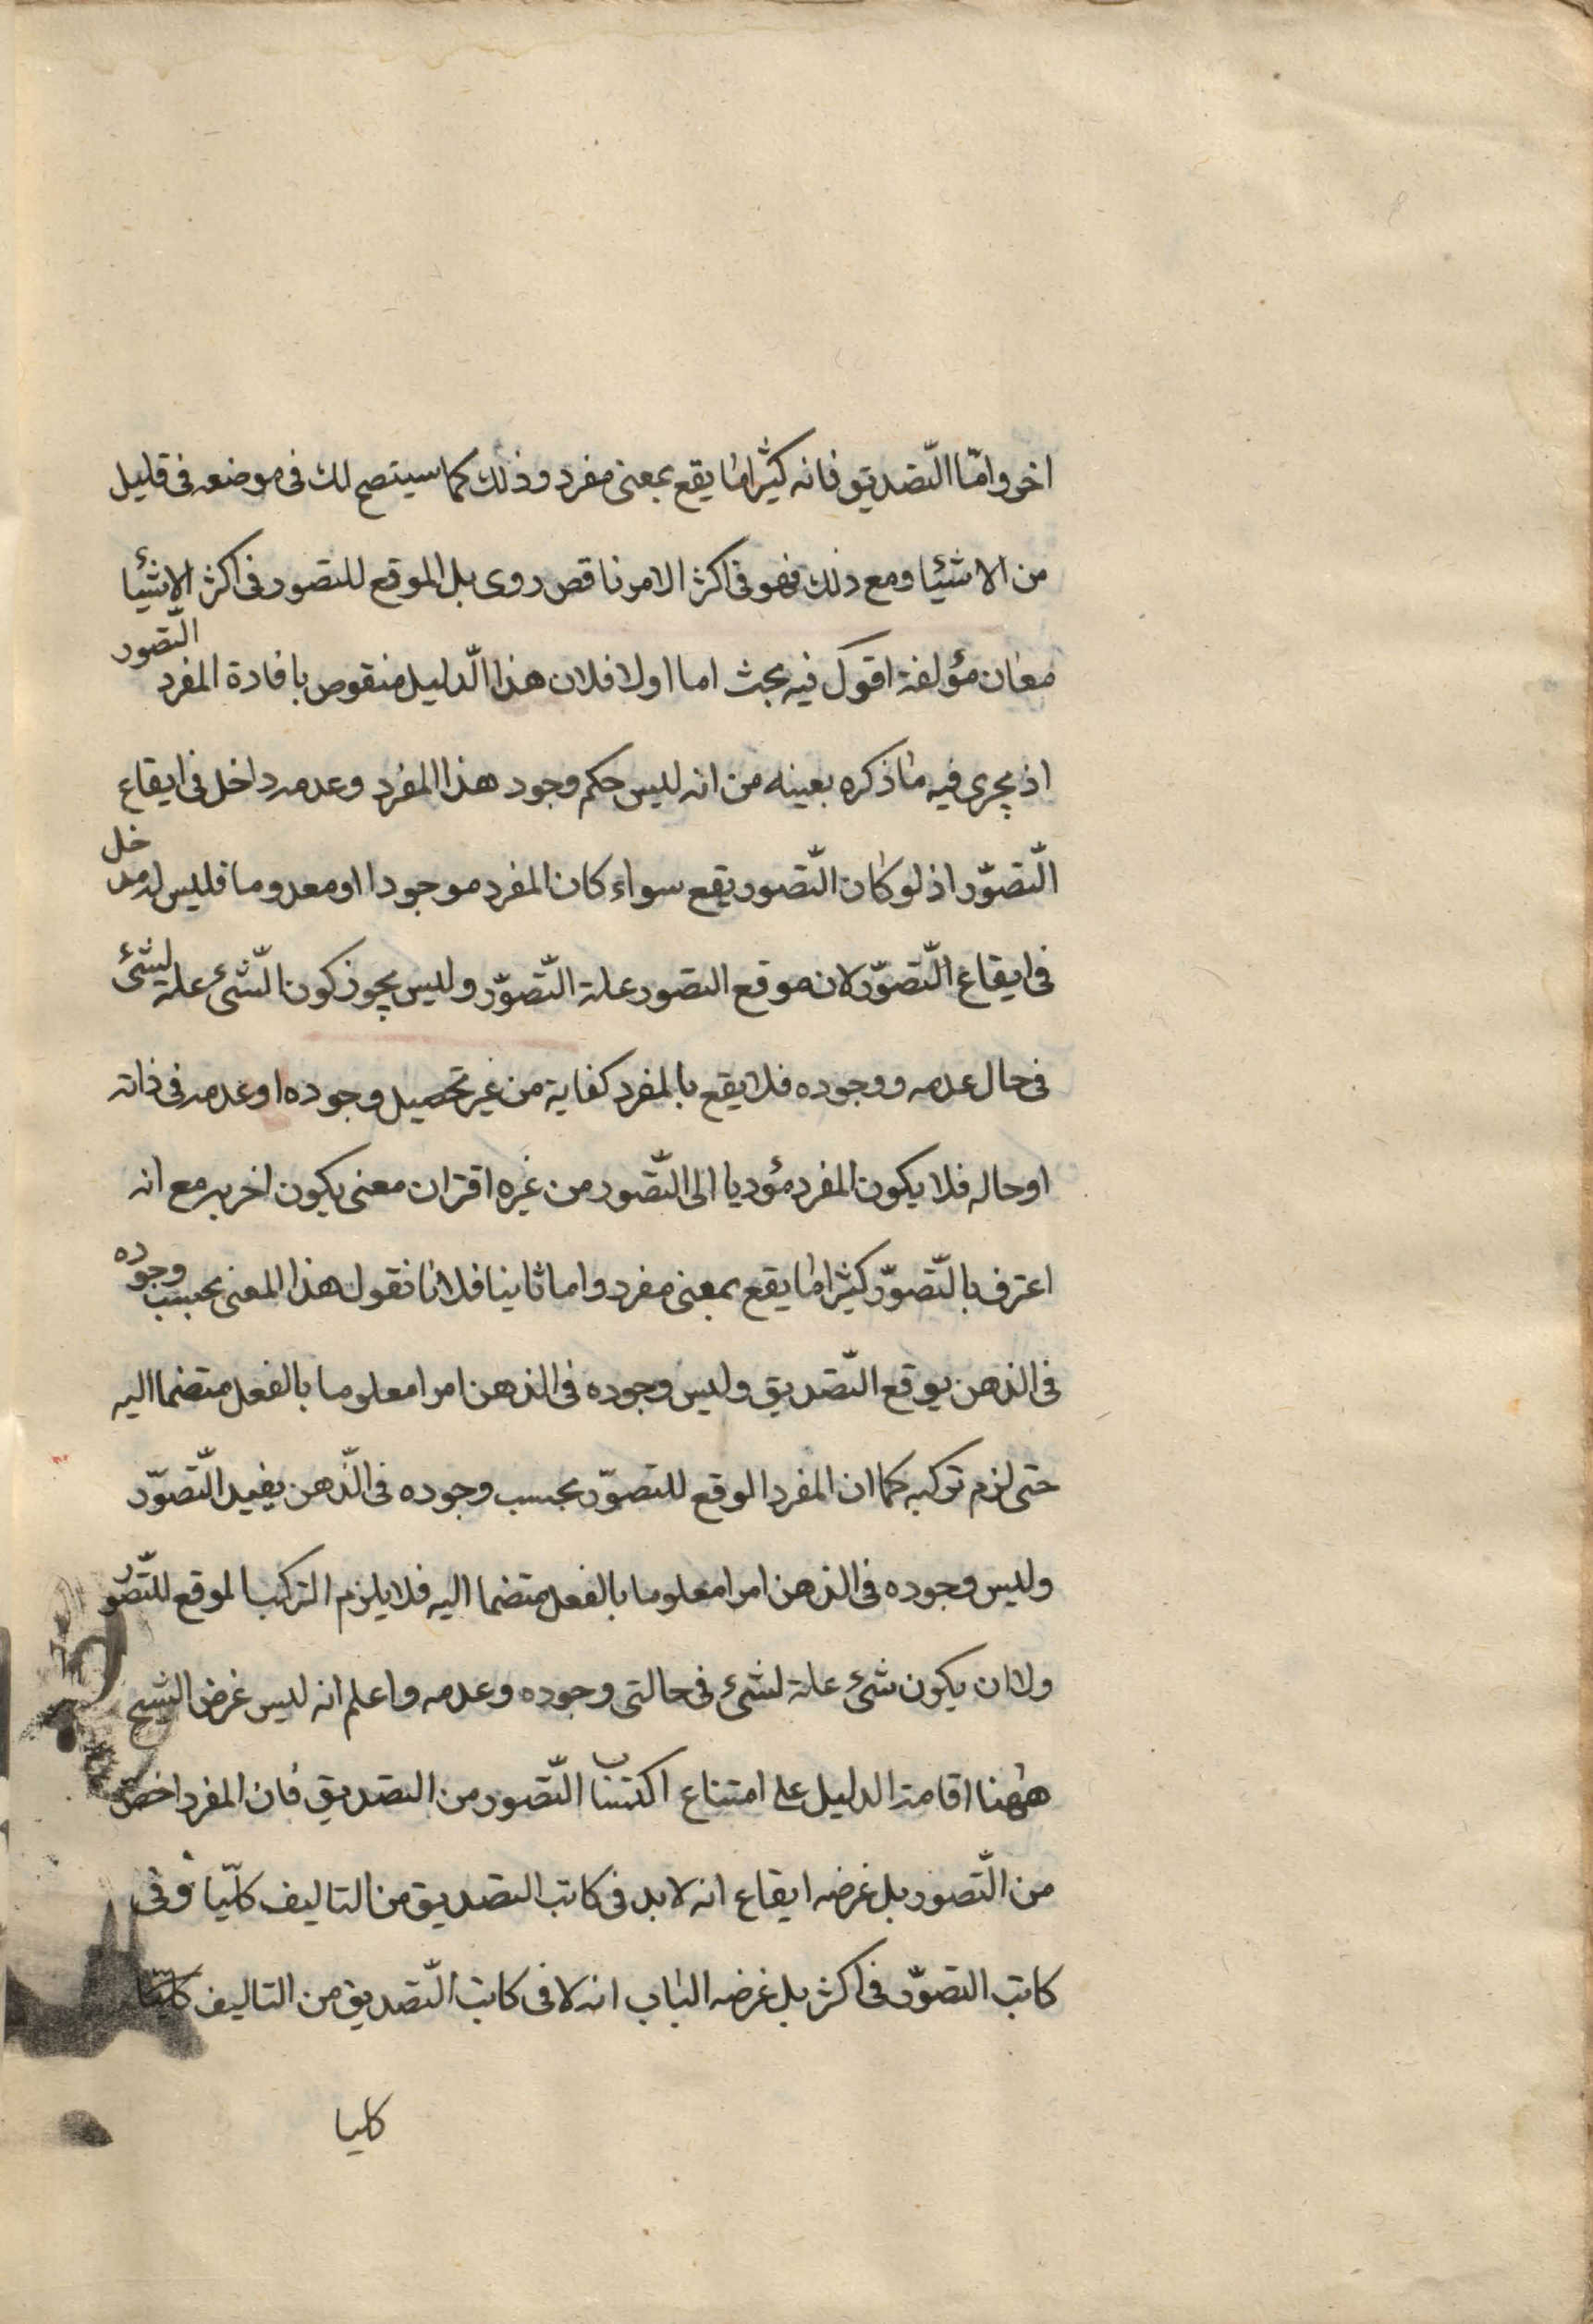 اخر وامّا التّصديق فانه كثيرا ما يقع بمعنى مفرد وذلك كما سيتصح لك فى موضعه فى قليل
من الاشئا ومع ذلك فهو فى اكثر الامر ناقص روى بل الموقع للتصور فى اكثر الاشئا
معان مؤلفة اقول فيه بحث اما اولا فلان هذا الدّليل منقوص بافادة المفرد التّصور
اذ يجرى فيه ما ذكره بعينه من انه ليس حكم وجود هذا المفرد وعدمه داخل فى ايقاع
التّصوّر اذ لو كان التّصور يقع سواء كان المفرد موجودا او معدوما فليس له مدخل
فى ايقاع التّصوّر لان موقع التصور علة التّصوّر وليس يجوز كون الشّئ علة لشئ
فى حال عدمه ووجوده فلا يقع بالمفرد كفاية من غير تحصيل وجوده او عدمه فى ذاته
او حاله فلا يكون المفرد مؤديا الى التّصور من غيره اقتران معنى يكون اخر به مع انه
اعترف بالتّصوّر كثيرا ما يقع بمعنى مفرد واما ثانيا فلانا نقول هذا المعنى بحسب وجوده
فى الذهن يوقع التّصديق وليس وجوده فى الذهن امرا معلوما بالفعل متضما اليه
حتى لزم تركبه كما ان المفرد الوقع للتصوّر بحسب وجوده فى الذّهن يفيد التّصوّر
وليس وجوده فى الذهن امرا معلوما بالفعل متضما اليه فلا يلزم التركب الموقع للتّصور
ولا ان يكون شئ علة لشئ فى حالتى وجوده وعدمه واعلم انه ليس غرض الشيخ
ههنا اقامة الدليل على امتناع اكتساب التّصور من التصديق فان المفرد اخص
من التّصور بل غرضه ايقاع انه لا بد فى كاتب التصديق من التاليف كليّا وفى
كاتب التصوّر فى اكثر بل غرضه الباب انه لا فى كاتب التّصديق من التاليف كليّا
كليا